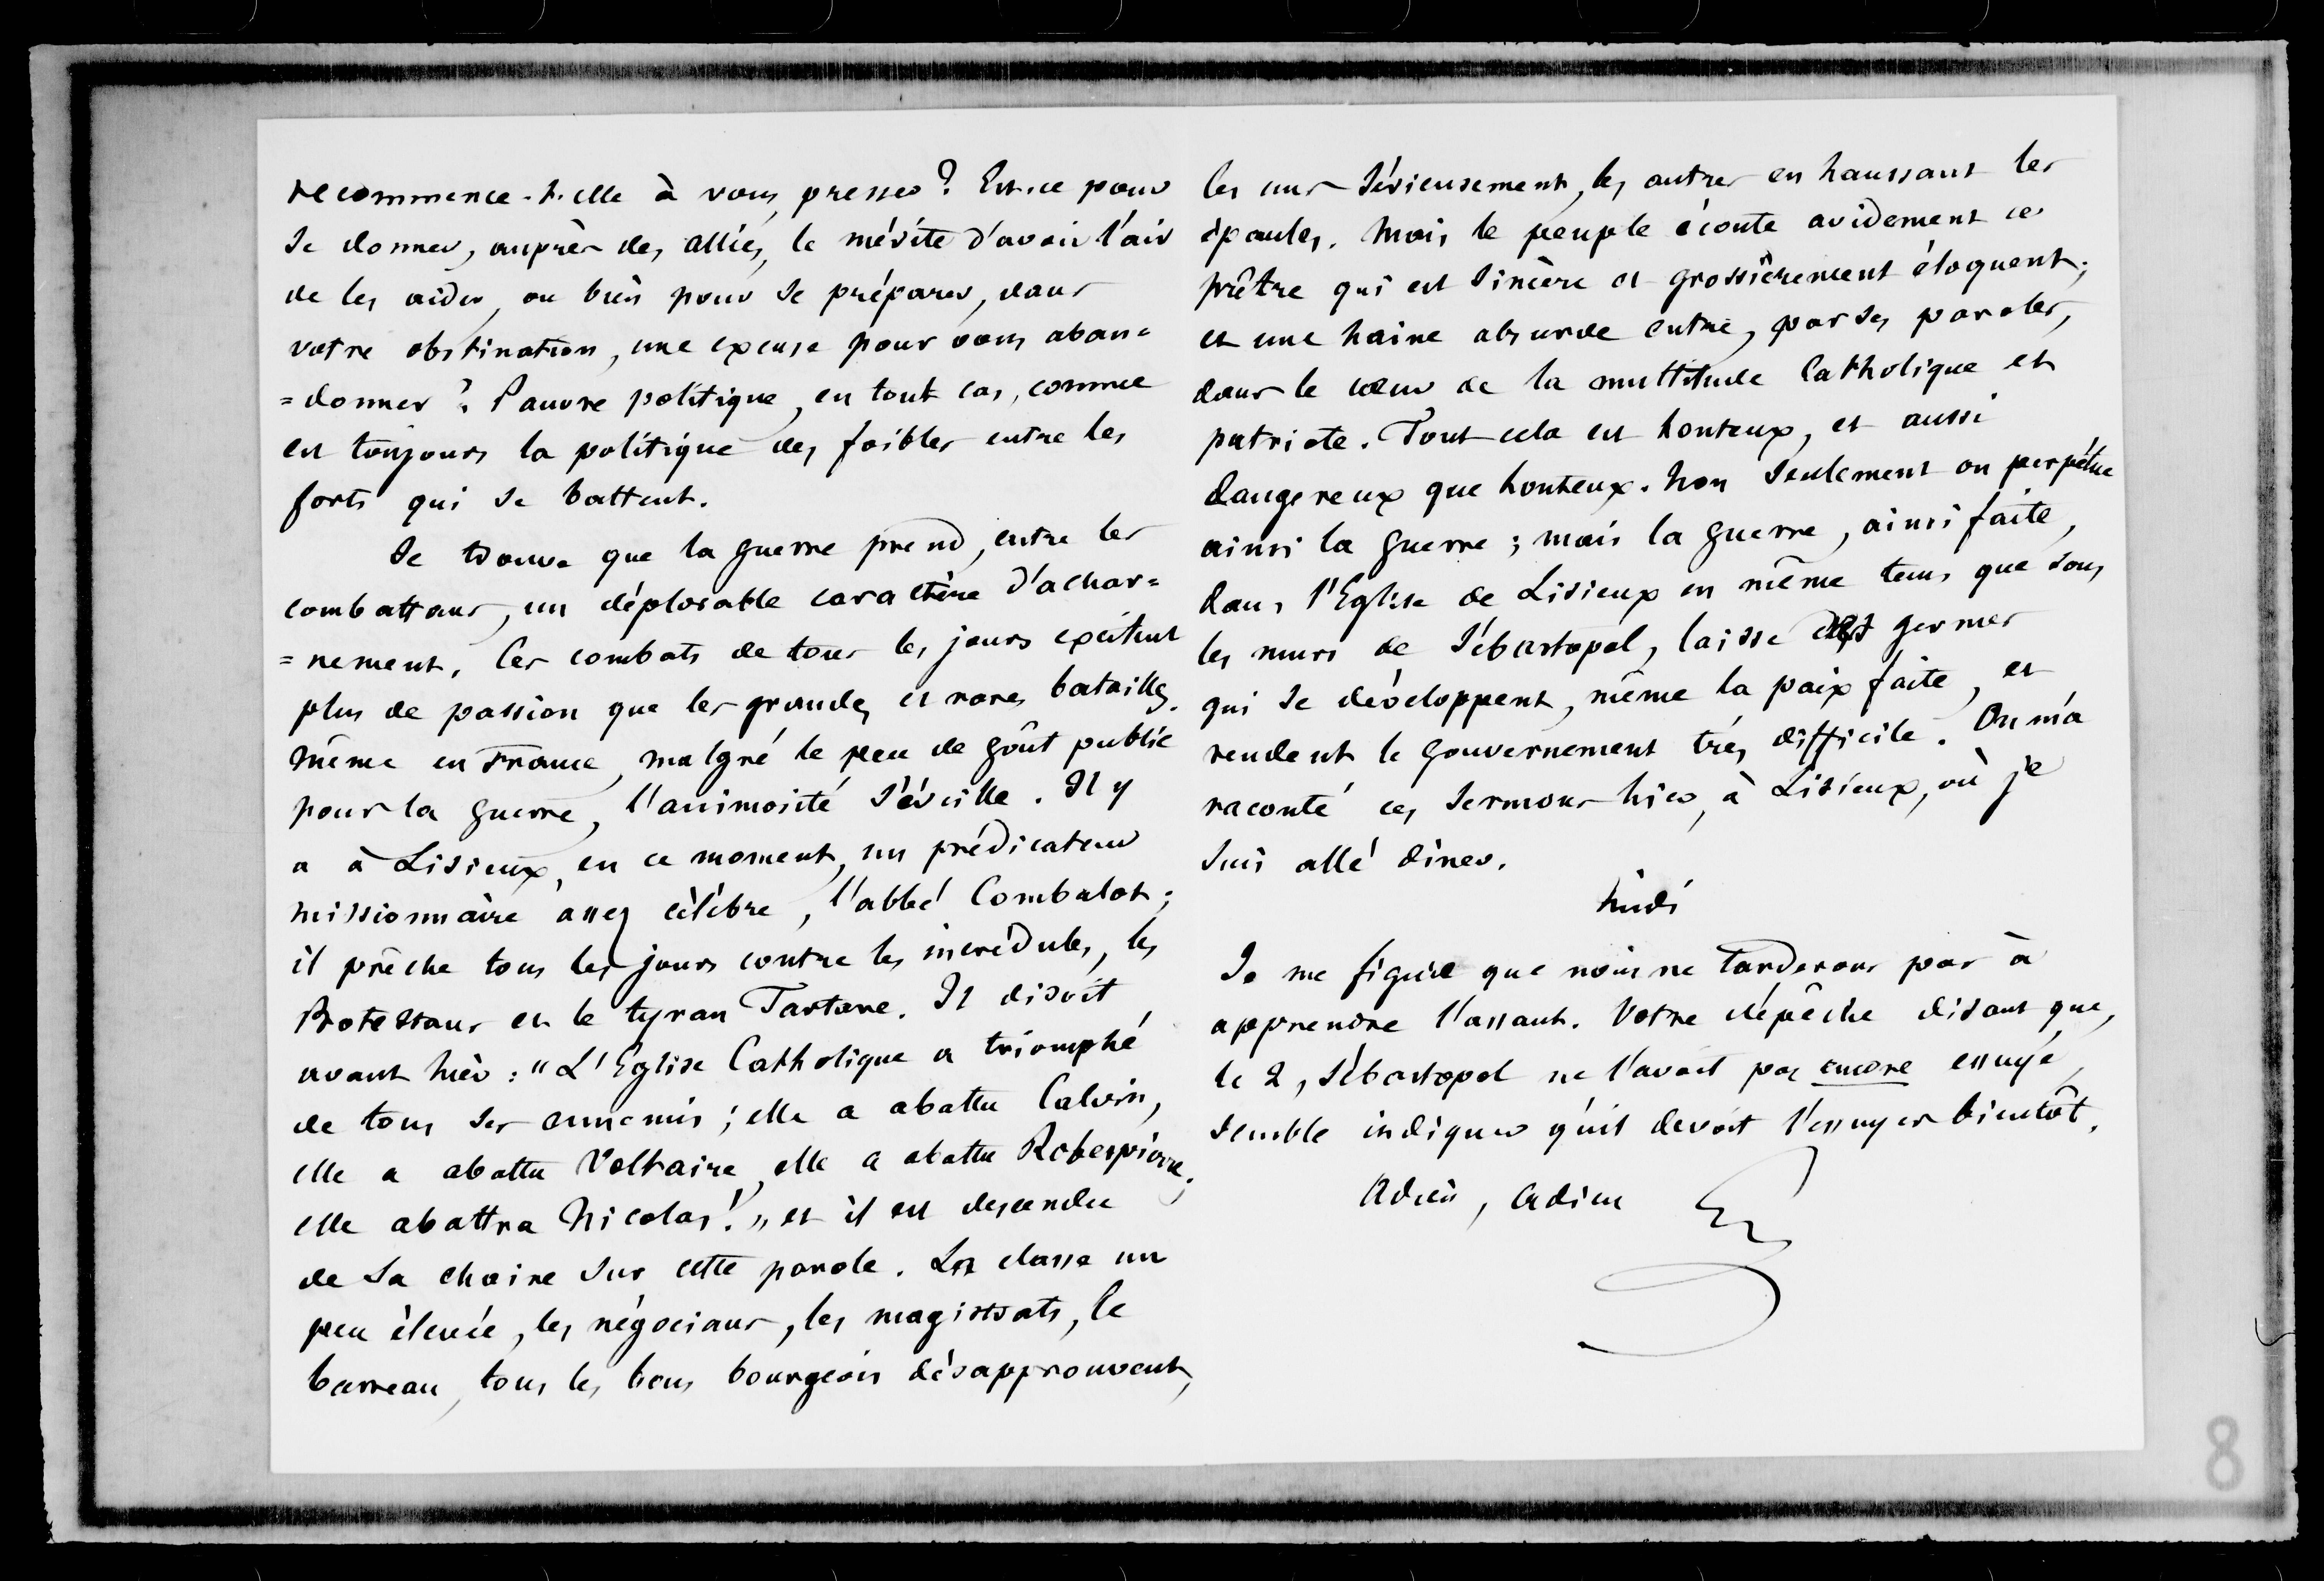 recommence-t-elle à vous presser? Est-ce pour
se donner, auprès des alliés, le mérite d'avoir l'air
de les aider, ou bien pour se préparer, dans
votre obstination, une excuse pour vous aban=
=donner? Pauvre politique, en tout cas, comme
est toujours la politique des foibles entre les
forts qui se battent.
Je trouve que la guerre prend, entre les
combattans, un déplorable caractère d'achar=
=nement. Ces combats de tous les jours excitent
plus de passion que les grandes et rares batailles.
Même en France, malgré le peu de goût public
pour la guerre, l'animosité s'éveille. Il y
a à Lisieux, en ce moment, un prédicateur
missionnaire assez célèbre, l'abbé Combalot;
il prêche tous les jours contre les incrédules, les
Protestans et le tyran Tartare. Il disoit
avant hier: "L'Eglise Catholique a triomphé
de tous ses ennemis; elle a abattu Calvin,
elle a abattu Voltaire, elle a abattu Robespierre;
elle abattra Nicolas!" et il est descendu
de sa chaire sur cette parole. La classe un
peu élevée, les négocians, les magistrats, le
barreau, tous les bons bourgeois désapprouvent,
les uns sérieusement, les autres en haussant les
épaules. Mais le peuple écoute avidement ce
prêtre qui est sincère et grossièrement éloquent;
et une haine absurde entre, par ses paroles,
dans le cœur de la multitude Catholique et
patriote. Tout cela est honteux, et aussi
dangereux que honteux. Non seulement on perpétue
ainsi la guerre; mais la guerre, ainsi faite,
dans l'Eglise de Lisieux en même tems que sous
les murs de Sébastopol, laisse des germes
qui se développent, même la paix faite, et
rendent le gouvernement très difficile. On m'a
raconté ces sermons hier, à Lisieux, où je
suis allé diner.
Midi
Je me figure que nous ne tarderons pas à
apprendre l'assaut. Votre dépêche disant que,
le 2, Sébastopol ne l'avoit pas encore essuyé,
semble indiquer qu'il devoit l'essuyer bientôt.
Adieu, Adieu
8